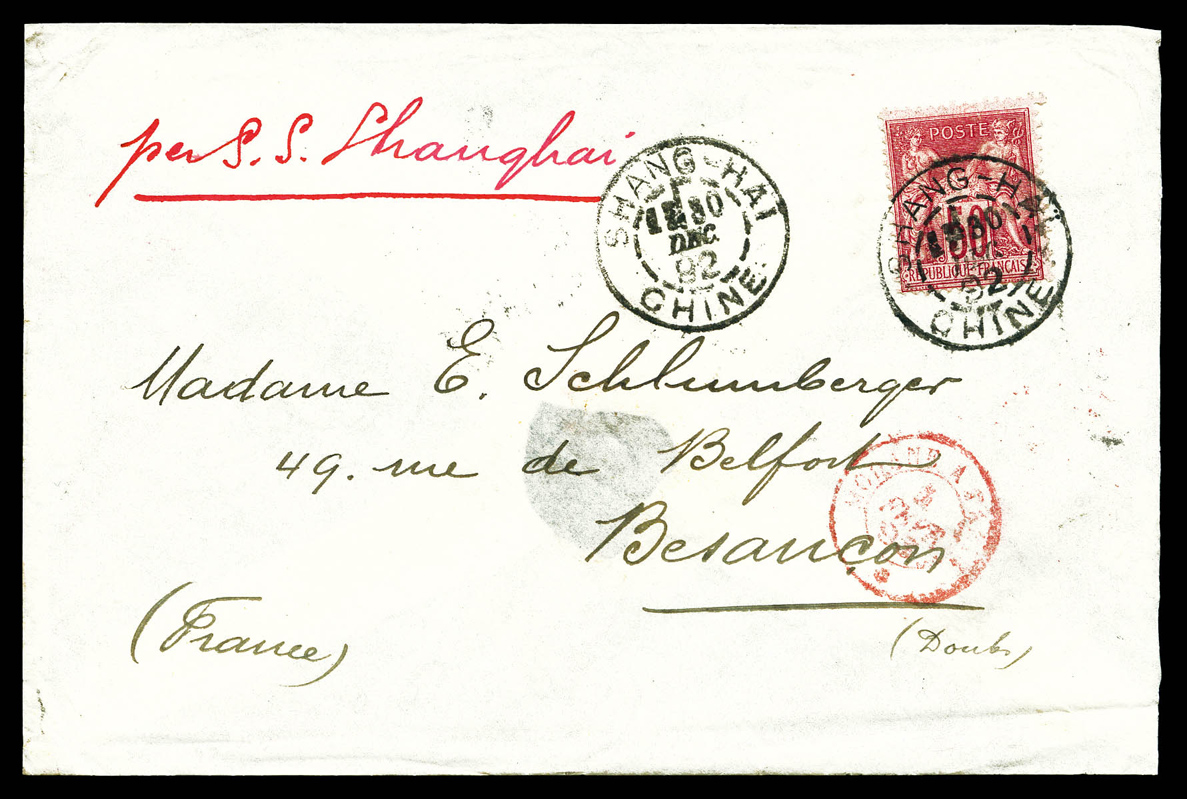 per S. S. Shanghai
SHANG-HAI
30
DEC
92
CHINE
POSTE
50
REPUBLIQUE FRANCAISE
SHANG-HAI
30
92
CHINE
Madame E. Schlumberger
49. rue de Belfort
Besançon
(France)
(Doubs)